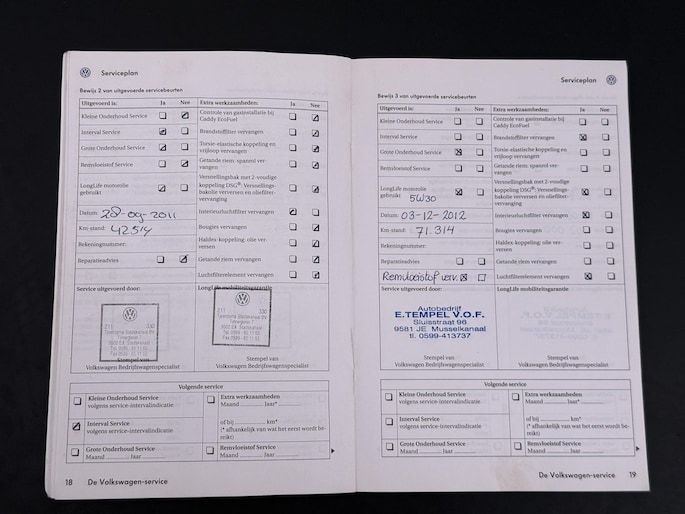 Serviceplan
Bewijs 2 van uitgevoerde servicebeurten
Uitgevoerd is: Ja Nee Extra werkzaamheden: Ja Nee
Kleine Onderhoud Service
Controle van gasinstallatie bij
Caddy EcoFuel
Interval Service
Brandstoffilter vervangen
Grote Onderhoud Service
Torsie-elastische koppeling en
vrijloop vervangen
Remvloeistof Service
Getande riem: spanrol ver-
vangen
LongLife motorolie
gebruikt
Versnellingsbak met 2-voudige
koppeling DSG®: Versnellings-
bakolie verversen en oliefilter-
vervanging
Datum: 28-09-2011
Interieurluchtfilter vervangen
Km-stand: 42514
Bougies vervangen
Rekeningnummer:
Haldex-koppeling: olie ver-
versen
Reparatieadvies
Getande riem vervangen
Luchtfilterelement vervangen
Service uitgevoerd door:
LongLife mobiliteitsgarantie
211 330
Stadskanaal BV
211 330
Stadskanaal BV
Stempel van
Volkswagen Bedrijfswagenspecialist
Stempel van
Volkswagen Bedrijfswagenspecialist
Volgende service
Kleine Onderhoud Service
volgens service-intervalindicatie
Extra werkzaamheden
Maand ......... Jaar*
Interval Service
volgens service-intervalindicatie
of bij ......... km*
(* afhankelijk van wat het eerst wordt be-
reikt)
Grote Onderhoud Service
Maand ......... Jaar
Remvloeistof Service
Maand ......... Jaar
18 De Volkswagen-service
Serviceplan
Bewijs 3 van uitgevoerde servicebeurten
Uitgevoerd is: Ja Nee Extra werkzaamheden: Ja Nee
Kleine Onderhoud Service
Controle van gasinstallatie bij
Caddy EcoFuel
Interval Service
Brandstoffilter vervangen
Grote Onderhoud Service
Torsie-elastische koppeling en
vrijloop vervangen
Remvloeistof Service
Getande riem: spanrol ver-
vangen
LongLife motorolie
gebruikt 5W30
Versnellingsbak met 2-voudige
koppeling DSG®: Versnellings-
bakolie verversen en oliefilter-
vervanging
Datum: 03-12-2012
Interieurluchtfilter vervangen
Km-stand: 71.314
Bougies vervangen
Rekeningnummer:
Haldex-koppeling: olie ver-
versen
Reparatieadvies
Getande riem vervangen
Remvloeistof verv.
Luchtfilterelement vervangen
Service uitgevoerd door:
LongLife mobiliteitsgarantie
Autobedrijf
E.TEMPEL V.O.F.
Sluisstraat 96
9581 JE Musselkanaal
tl. 0599-413737
Stempel van
Volkswagen Bedrijfswagenspecialist
Stempel van
Volkswagen Bedrijfswagenspecialist
Volgende service
Kleine Onderhoud Service
volgens service-intervalindicatie
Extra werkzaamheden
Maand ......... Jaar*
Interval Service
volgens service-intervalindicatie
of bij ......... km*
(* afhankelijk van wat het eerst wordt be-
reikt)
Grote Onderhoud Service
Maand ......... Jaar
Remvloeistof Service
Maand ......... Jaar
De Volkswagen-service 19